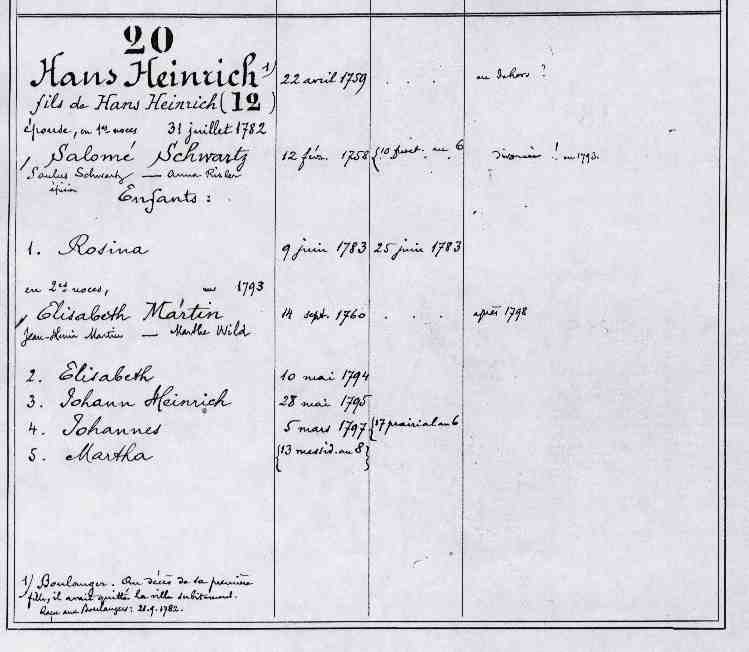 20
Hans Heinrich 1) 22 avril 1759 . . . au dehors ?
fils de Hans Heinrich (12)
épouse, en 1res noces 31 juillet 1782
Salomé Schwartz 12 fév. 1758 {10 fruct. au 6 divorcée ! en 1793.
Paulus Schwartz — Anna Risler
épicier
Enfants :
1. Rosina 9 juin 1783 25 juin 1783
en 2es noces, en 1793
Elisabeth Martin 14 sept. 1760 . . . après 1798
Jean-Henri Martin — Marthe Wild
2. Elisabeth 10 mai 1794
3. Johann Heinrich 28 mai 1795
4. Johannes 5 mars 1797 {17 prairial au 6
5. Martha {13 messid. au 8}
1) Boulanger. Au décès de sa première
fille, il avait quitté la ville subitement.
Reçu aux Boulangers: 21.9.1782.